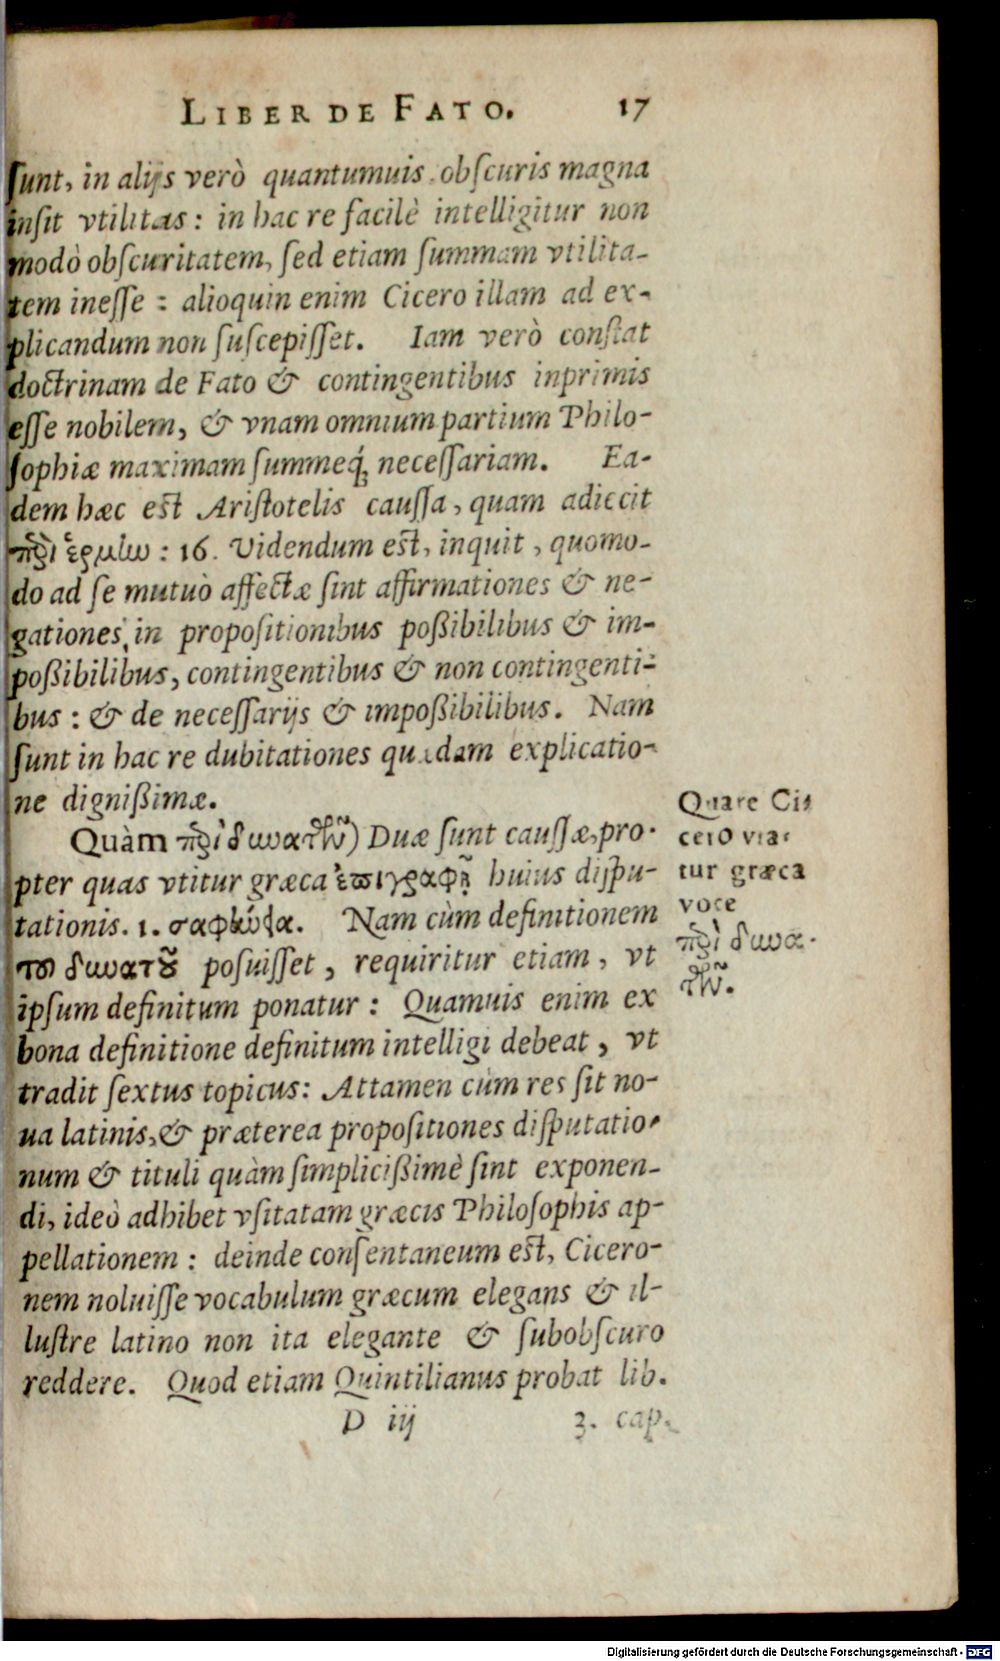 LIBER DE FATO. 17
sunt, in alijs verò quantumuis obscuris magna
insit vtilitas: in hac re facilè intelligitur non
modò obscuritatem, sed etiam summam vtilita-
tem inesse: alioquin enim Cicero illam ad ex-
plicandum non suscepisset. Iam verò constat
doctrinam de Fato & contingentibus inprimis
esse nobilem, & vnam omnium partium Philo-
sophiæ maximam summeq́; necessariam. Ea-
dem hæc est Aristotelis caussa, quam adiecit
περὶ ἑρμην: 16. Videndum est, inquit, quomo-
do ad se mutuò affectæ sint affirmationes & ne-
gationes, in propositionibus poßibilibus & im-
poßibilibus, contingentibus & non contingenti-
bus: & de necessarijs & impoßibilibus. Nam
sunt in hac re dubitationes quædam explicatio-
ne dignißimæ.
Quàm περὶ δυνατῶν) Duæ sunt caussæ, pro-
pter quas vtitur græca ἐπιγραφῇ huius dispu-
tationis. 1. σαφηνεία. Nam cùm definitionem
τοῦ δυνατοῦ posuisset, requiritur etiam, vt
ipsum definitum ponatur: Quamuis enim ex
bona definitione definitum intelligi debeat, vt
tradit sextus topicus: Attamen cùm res sit no-
ua latinis, & præterea propositiones disputatio-
num & tituli quàm simplicißimè sint exponen-
di, ideò adhibet vsitatam græcis Philosophis ap-
pellationem: deinde consentaneum est, Cicero-
nem noluisse vocabulum græcum elegans & il-
lustre latino non ita elegante & subobscuro
reddere. Quod etiam Quintilianus probat lib.
D iij 3. cap.
Quare Ci-
cero vta-
tur græca
voce
περὶ δυνα-
τῶν.
Digitalisierung gefördert durch die Deutsche Forschungsgemeinschaft - DFG